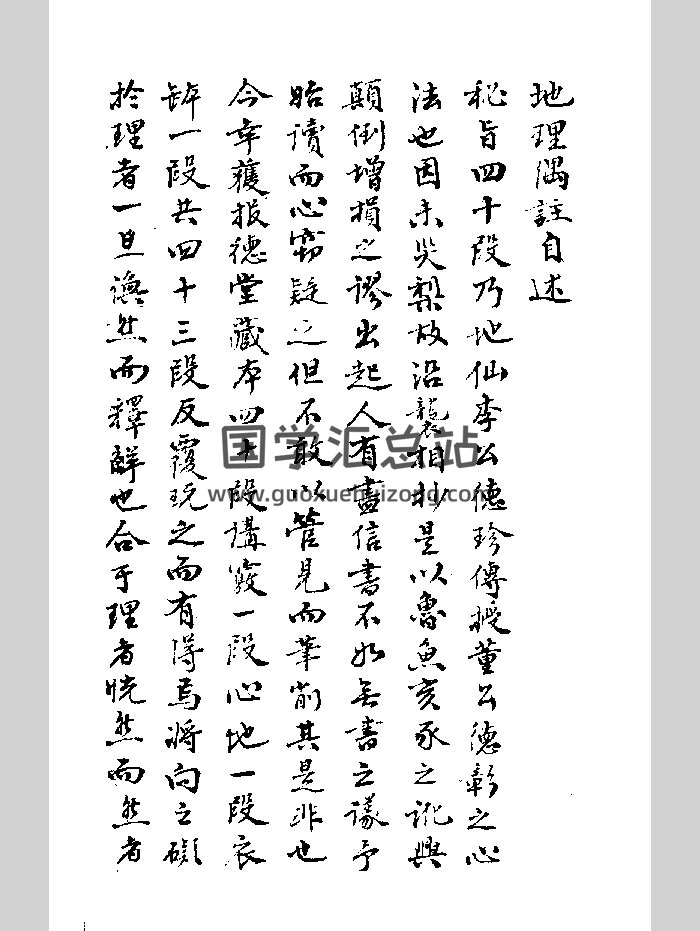 地理隅註自述
秘旨四十段乃地仙李公德珍傳授董公德彰之心
法也因未災梨故沿襲相抄是以魯魚亥豕之訛與
顛倒增損之謬出起人有盡信書不如無書之議予
始讀而心竊疑之但不敢以管見而筆削其是非也
今幸獲报德堂藏本四十段講義一段心地一段衣
缽一段共四十三段反覆玩之而有得焉將向之礙
於理者一旦渙然而釋觧也合于理者恍然而然者
国学汇总站
www.guoxuehuizong.com